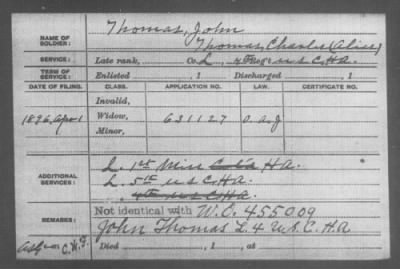 NAME OF SOLDIER: Thomas, John
Thomas, Charles (Alias)
SERVICE: Late rank, Co. L, 4th Reg't U S C. H A.
TERM OF SERVICE: Enlisted , 1 Discharged , 1
DATE OF FILING. CLASS. APPLICATION NO. LAW. CERTIFICATE NO.
Invalid,
1896, Apr 1 Widow, 631127 O. a. J
Minor,
ADDITIONAL SERVICES: L. 1st Miss Col'd H A.
L. 5th U S C. H A.
4th U S C. H A.
REMARKS: Not identical with W. O. 455009
John Thomas L. 4 U. S. C. H. A
Died , 1 , at